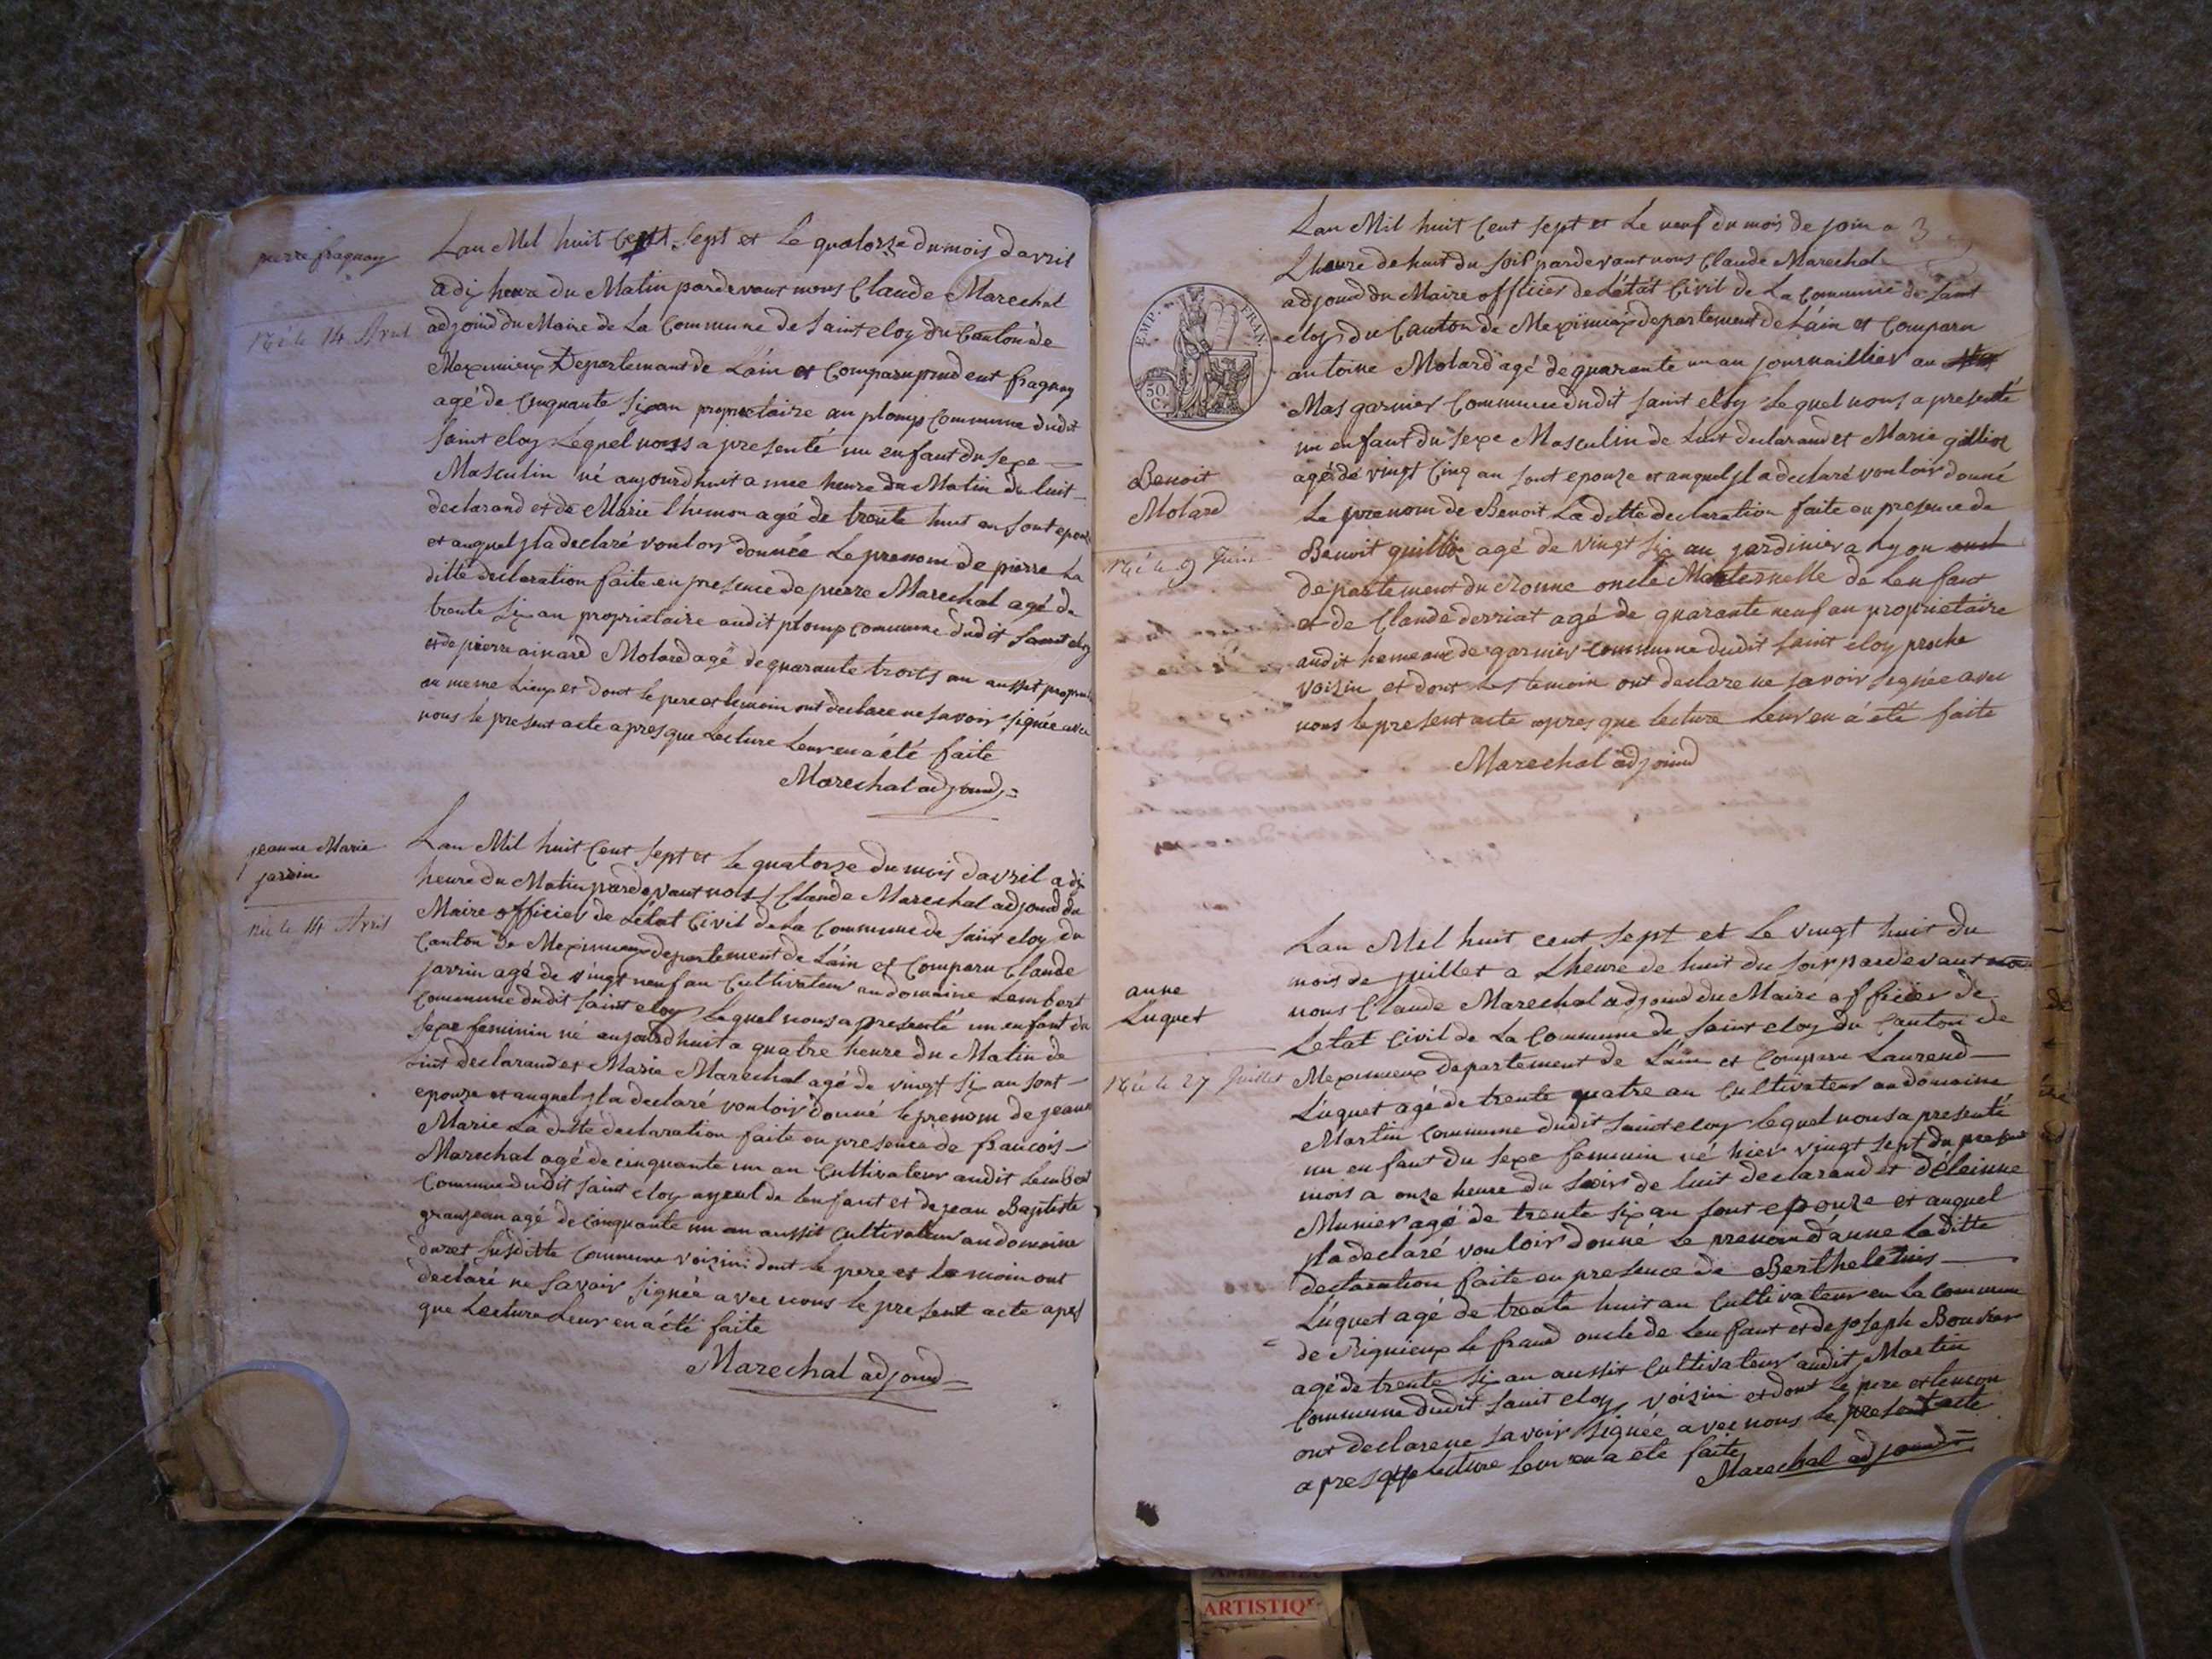 pierre fragnay
Né le 14 Avril
Lan Mil huit Cent Sept et Le quatorze du mois davril
a dix heure du Matin pardevant nous Claude Marechal
adjoind du Maire de La Commune de Saint eloy du Canton de
Meximieux Departemant de Láin et Comparu prudent fragnay
agé de Cinquante Six an propriétaire au plomp Commune dudit
Saint eloy Lequel nous a presenté un enfant du Sexe
Masculin né aujourdhuit a une heure du Matin de luit
declarand et de Marie Themon agé de trente huit an sont epouze
et auquel jl a declaré vouloir donnée Le prenom de pierre La
ditte declaration faite en presence de pierre Marechal agé de
trente Six an proprietaire audit plomp commune dudit Saint eloy
et de pierre ainard Molard agé de quarante troits an aussit propriet
au meme Lieux et dont le pere et temoin ont declare ne Savoir Signée avec
nous le present acte apres que Lecture Leur en a été faite
Marechal adjoind
jeanne Marie
jarrin
Née le 14 Avril
Lan Mil huit Cent Sept et le quatorze du mois davril a dix
heure du Matin pardevant nous Claude Marechal adjoind du
Maire officier de Létat Civil de La Commune de Saint eloy du
Canton de Meximieux departement de Láin et Comparu Claude
jarrin agé de vingt neuf an Cultivateur au domaine Lembert
Commune dudit Saint eloy Lequel nous a presenté un enfant du
Sexe feminin né aujourdhuit a quatre heure du Matin de
luit declarand et Marie Marechal agé de vingt Six an sont
epouze et auquel jl a declaré vouloir donné le prenom de jeanne
Marie La ditte declaration faite en presence de francois
Marechal agé de cinquante un an Cultivateur audit Lembert
Commune dudit Saint eloy ayeul de lenfant et de jean Baptiste
granjean agé de Cinquante un an aussit Cultivateur au domaine
duret Susditte Commune voizin dont le pere et temoin ont
declaré ne Savoir Signée avec nous le present acte apres
que Lecture Leur en a été faite
Marechal adjoind
3
EMP. FRAN.
50 C.
Benoit
Molard
Né le 9 Juin
Lan Mil huit Cent Sept et Le neuf du mois de join a
Lheure de huit du Soir pardevant nous Claude Marechal
adjoind du Maire officier de Létat Civil de La commune de Saint
eloy du Canton de Meximieux departement de Láin et Comparu
antoine Molard agé de quarante un an journaillier au
Mas garnier Commune dudit Saint eloy Lequel nous a presenté
un enfant du Sexe Masculin de Luit declarand et Marie gillioz
agé de vingt Cinq an sont epouze et auquel jl a declaré vouloir donné
Le prenom de Benoit La ditte declaration faite en presence de
Benoit guillioz agé de vingt Six an jardinier a Lyon
departement du Ronne oncle Maternelle de Lenfant
et de Claude derriat agé de quarante neuf an proprietaire
audit hameaux de garnier Commune dudit Saint eloy proche
voizin et dont Les temoin ont declare ne Savoir Signée avec
nous le present acte apres que Lecture Leur en a été faite
Marechal adjoind
anne
Luquet
Née le 27 Juillet
Lan Mil huit cent Sept et Le vingt huit du
mois de juillet a Lheure de huit du Soir pardevant
nous Claude Marechal adjoind du Maire officier de
Letat Civil de La Commune de Saint eloy du Canton de
Meximieux departement de Láin et Comparu Laurend
Luquet agé de trente quatre an Cultivateur au domaine
Martin Commune dudit Saint eloy Lequel nous a presenté
un enfant du Sexe feminin né hier vingt Sept du present
mois a onze heure du Soir de luit declarand et déleinne
Munier agé de trente Six an sont epouze et auquel
jl a declaré vouloir donné Le prenom danne La ditte
declaration faite en presence de Berthelemis
Luquet agé de trente huit an Cultivateur en La Commune
de Rignieux le frand oncle de Lenfant et de joseph Bouvier
agé de trente Six an aussit Cultivateur audit Martin
Commune dudit Saint eloy voizin et dont le pere et temoin
ont declare ne Savoir Signée avec nous le present acte
apres que Lecture leur en a été faite
Marechal adjoind
ARTISTIQ